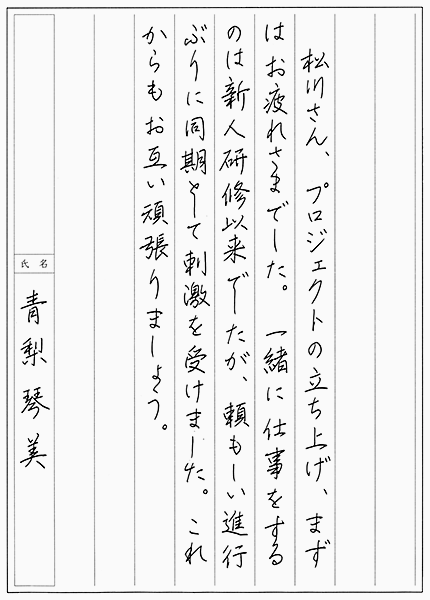 松川さん、プロジェクトの立ち上げ、まず
はお疲れさまでした。一緒に仕事をする
のは新人研修以来でしたが、頼もしい進行
ぶりに同期として刺激を受けました。これ
からもお互い頑張りましょう。
氏名
青梨琴美